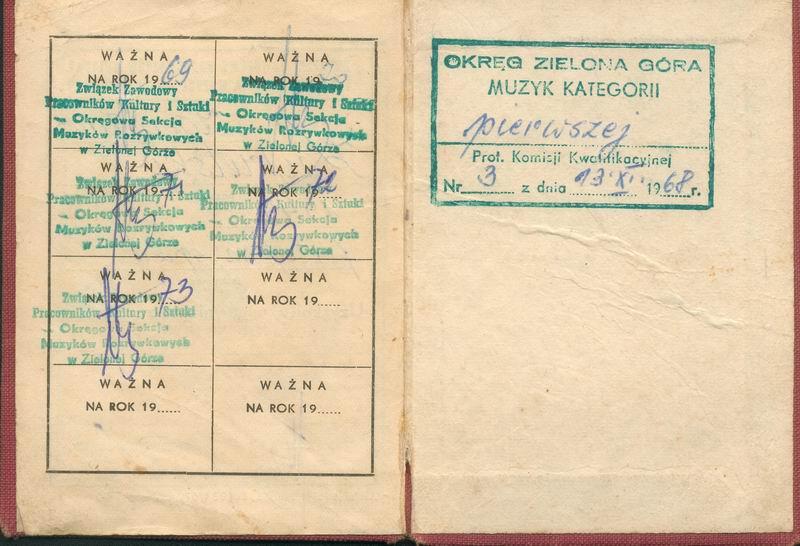 WAŻNA
NA ROK 1969
Związek Zawodowy
Pracowników Kultury i Sztuki
Okręgowa Sekcja
Muzyków Rozrywkowych
w Zielonej Górze
WAŻNA
NA ROK 19
Związek Zawodowy
Pracowników Kultury i Sztuki
Okręgowa Sekcja
Muzyków Rozrywkowych
w Zielonej Górze
WAŻNA
NA ROK 1971
Związek Zawodowy
Pracowników Kultury i Sztuki
Okręgowa Sekcja
Muzyków Rozrywkowych
w Zielonej Górze
WAŻNA
NA ROK 1972
Związek Zawodowy
Pracowników Kultury i Sztuki
Okręgowa Sekcja
Muzyków Rozrywkowych
w Zielonej Górze
WAŻNA
NA ROK 1973
Związek Zawodowy
Pracowników Kultury i Sztuki
Okręgowa Sekcja
Muzyków Rozrywkowych
w Zielonej Górze
WAŻNA
NA ROK 19......
WAŻNA
NA ROK 19......
WAŻNA
NA ROK 19......
OKRĘG ZIELONA GÓRA
MUZYK KATEGORII
pierwszej
Prot. Komisji Kwalifikacyjnej
Nr 3 z dnia 13 XI 1968 r.